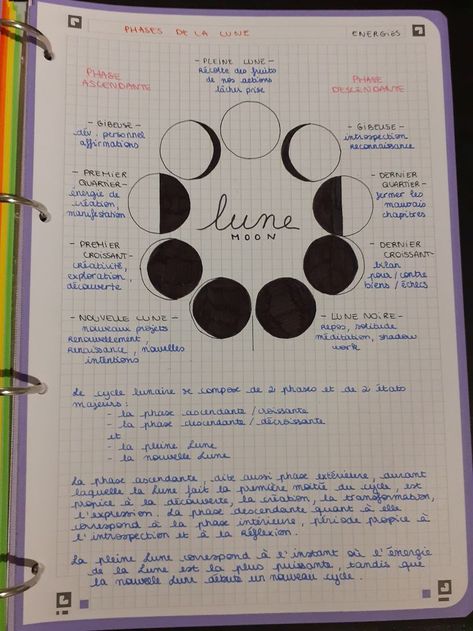 PHASES DE LA LUNE
ENERGIES
PHASE
ASCENDANTE
- PLEINE LUNE -
récolte des fruits
de nos actions
lâcher prise
PHASE
DESCENDANTE
- GIBEUSE -
dév. personnel
affirmations
- GIBEUSE -
introspection
reconnaissance
- PREMIER
QUARTIER -
énergie de
création,
manifestation
- DERNIER
QUARTIER -
fermer les
mauvais
chapitres
lune
MOON
- PREMIER
CROISSANT -
créativité,
exploration,
découverte
- DERNIER
CROISSANT -
bilan
pour/contre
biens/échecs
- NOUVELLE LUNE -
nouveaux projets
renouvellement,
renaissance, nouvelles
intentions
- LUNE NOIRE -
repos, solitude
méditation, shadow
work
Le cycle lunaire se compose de 2 phases et de 2 états
majeurs :
- la phase ascendante / croissante
- la phase descendante / décroissante
et
- la pleine Lune
- la nouvelle Lune
La phase ascendante, dite aussi phase extérieure, durant
laquelle la Lune fait la première moitié du cycle, est
propice à la découverte, la création, la transformation,
l'expression. La phase descendante quant à elle
correspond à la phase intérieure, période propice à
l'introspection et à la réflexion.
La pleine Lune correspond à l'instant où l'énergie
de la Lune est la plus puissante, tandis que
la nouvelle Lune débute un nouveau cycle.